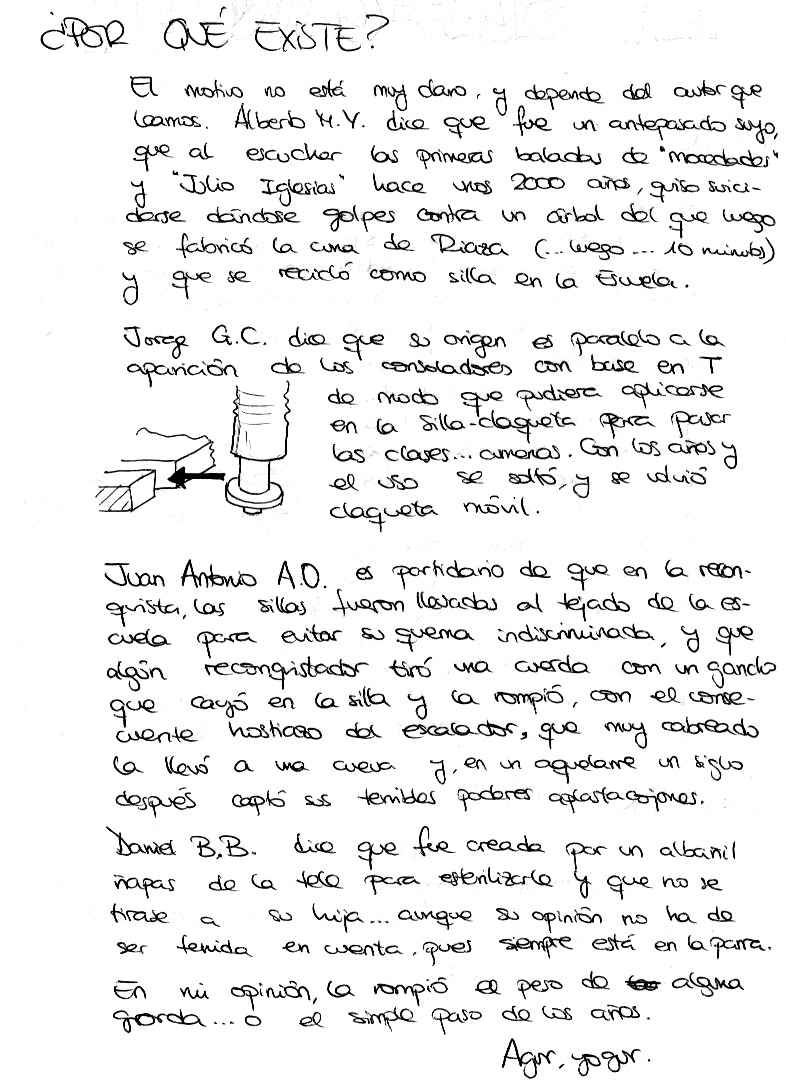 ¿POR QUÉ EXISTE?
El motivo no está muy claro, y depende del autor que
leamos. Alberto M.V. dice que fue un antepasado suyo,
que al escuchar las primeras baladas de "mocedades"
y "Julio Iglesias" hace unos 2000 años, quiso suici-
darse dándose golpes contra un árbol del que luego
se fabricó la cuna de Riaza (...luego... 10 minutos)
y que se recicló como silla en la Escuela.
Jorge G.C. dice que su origen es paralelo a la
aparición de los consoladores con base en T
de modo que pudiera aplicarse
en la silla-claqueta para pasar
las clases... amenas. Con los años y
el uso se soltó, y se volvió
claqueta móvil.
Juan Antonio A.O. es partidario de que en la recon-
quista, las sillas fueron llevadas al tejado de la es-
cuela para evitar su quema indiscriminada, y que
algún reconquistador tiró una cuerda con un gancho
que cayó en la silla y la rompió, con el conse-
cuente hostiazo del escalador, que muy cabreado
la llevó a una cueva y, en un aquelarre un siglo
después captó sus temibles poderes aplastacojones.
Daniel B.B. dice que fue creada por un albañil
ñapas de la tele para esterilizarle y que no se
tirase a su hija... aunque su opinión no ha de
ser tenida en cuenta, pues siempre está en la parra.
En mi opinión, la rompió el peso de alguna
gorda... o el simple paso de los años.
Agur, yogur.